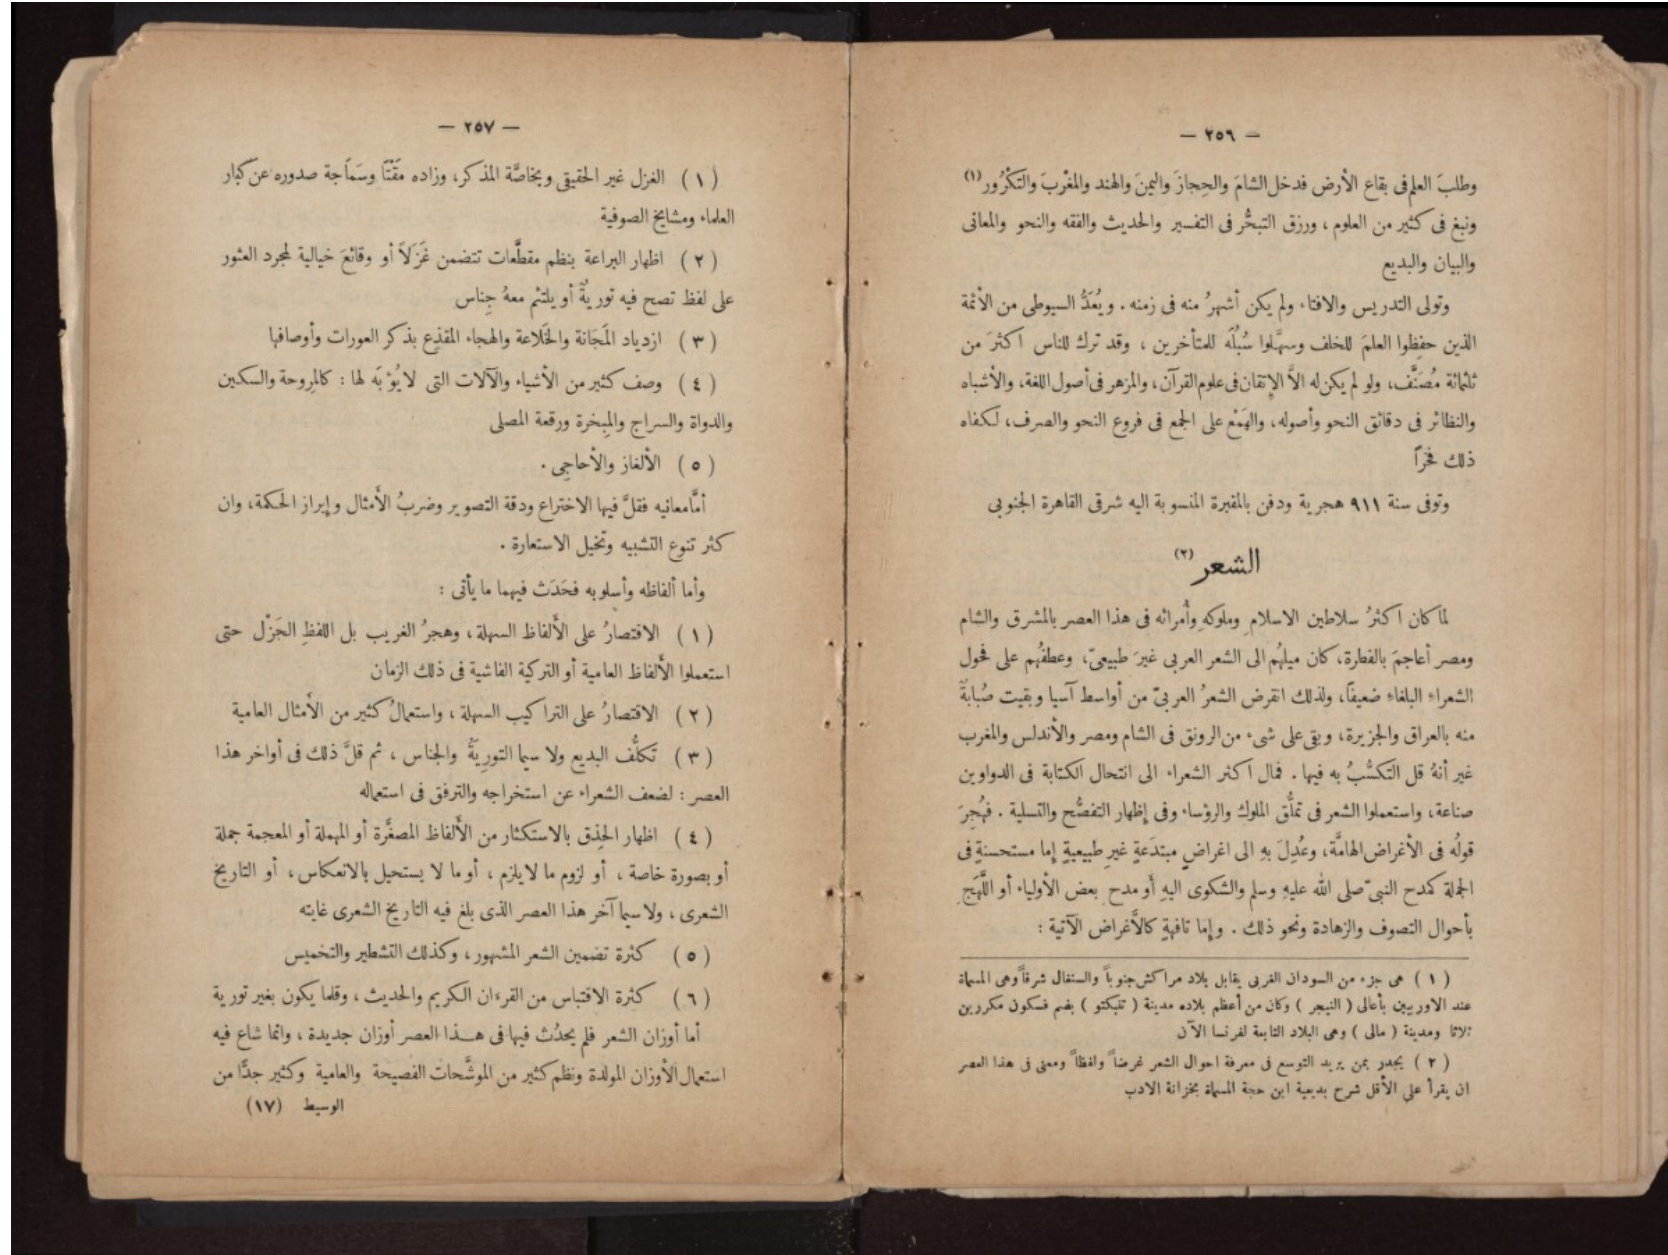 — ٢٥٦ —
وطلبَ العلم فى بقاع الأرض فدخل الشامَ والحِجازَ واليمنَ والهند والمغْربَ والتكْرُور (١)
ونبغ فى كثير من العلوم ، ورزق التبحُّر فى التفسير والحديث والفقه والنحو والمعانى
والبيان والبديع
وتولى التدريس والافتاء ولم يكن أشهرُ منه فى زمنه . ويُعَدُّ السيوطى من الأئمة
الذين حفِظوا العلمَ للخلف وسهَّلوا سُبُلَه للمتأخرين ، وقد ترك للناس اكثرَ من
ثلثمائة مُصَنَّف، ولو لم يكن له الاَّ الإتقان فى علوم القرآن، والمزهر فى أصول اللغة، والأشباه
والنظائر فى دقائق النحو وأصوله، والهَمْع على الجمع فى فروع النحو والصرف، لكفاه
ذلك فخراً
وتوفى سنة ٩١١ هجرية ودفن بالمقبرة المنسوبة اليه شرقى القاهرة الجنوبى
الشعر (٢)
لما كان اكثرُ سلاطين الاسلام وملوكهِ وأُمرائه فى هذا العصر بالمشرق والشام
ومصر أعاجمَ بالفطرة، كان ميلهُم الى الشعر العربى غيرَ طبيعىّ، وعطفُهم على فحول
الشعراء البلغاء ضعيفاً، ولذلك انقرض الشعرُ العربىّ من أواسط آسيا وبقيت صُبابةٌ
منه بالعراق والجزيرة، وبقى على شىء من الرونق فى الشام ومصر والأندلس والمغرب
غير أنهُ قل التكسُّبُ به فيها . فمال اكثر الشعراء الى انتحال الكتابة فى الدواوين
صناعة، واستعملوا الشعر فى تملُّق الملوك والرؤساء وفى إظهار التفصُّح والتسلية . فهُجِرَ
قولُه فى الأغراض الهامَّة، وعُدِلَ بهِ الى اغراضٍ مبتدَعةٍ غيرِ طبيعيةٍ إما مستحسنةٍ فى
الجملة كمدح النبىّ صلى الله عليهِ وسلم والشكوى اليهِ أو مدح بعض الأولياء أو اللَّهَج
بأحوال التصوف والزهادة ونحو ذلك . وإما تافهةٍ كالأغراض الآتية :
( ١ ) هى جزء من السودان الغربى يقابل بلاد مراكش جنوباً والسنغال شرقاً وهى المسماة
عند الاوربيين بأعالى ( النيجر ) وكان من أعظم بلاده مدينة ( تنبكتو ) بضم فسكون مكررين
ثلاثا ومدينة ( مالى ) وهى البلاد التابعة لفرنسا الآن
( ٢ ) يجدر بمن يريد التوسع فى معرفة احوال الشعر غرضاً ولفظاً ومعنى فى هذا العصر
ان يقرأ على الأقل شرح بديعية ابن حجة المسماة بخزانة الادب
— ٢٥٧ —
( ١ ) الغزل غير الحقيقى وبخاصَّة المذكر، وزاده مَقْتًا وسَمَاجة صدوره عن كبار
العلماء ومشايخ الصوفية
( ٢ ) اظهار البراعة بنظم مقطَّعات تتضمن غَزَلاً أو وقائعَ خيالية لمجرد العثور
على لفظ تصح فيه توريةٌ أو يلتئم معهُ جِناس
( ٣ ) ازدياد المَجَانة والخَلاعة والهجاء المقذِع بذكر العورات وأوصافها
( ٤ ) وصف كثير من الأشياء والآلات التى لا يُوْبَه لها : كالمِروحة والسكين
والدواة والسراج والمِبخرة ورقعة المصلى
( ٥ ) الألغاز والأحاجِى .
أمَّا معانيه فقلَّ فيها الاختراع ودقة التصوير وضربُ الأمثال وإبراز الحكمة، وان
كثر تنوع التشبيه وتخيل الاستعارة .
وأما ألفاظه وأسلوبه فحَدَث فيهما ما يأتى :
( ١ ) الاقتصارُ على الألفاظ السهلة ، وهجرُ الغريب بل اللفظِ الجَزْل حتى
استعملوا الألفاظ العامية أو التركية الفاشية فى ذلك الزمان
( ٢ ) الاقتصارُ على التراكيب السهلة ، واستعمالُ كثير من الأمثال العامية
( ٣ ) تَكلُّف البديع ولا سيما التورِيَةُ والجناس ، ثم قلَّ ذلك فى أواخر هذا
العصر : لضعف الشعراء عن استخراجه والترفق فى استعماله
( ٤ ) اظهار الحِذِق بالاستكثار من الألفاظ المصغَّرة أو المهملة أو المعجمة جملة
أو بصورة خاصة ، أو لزوم ما لا يلزم ، أو ما لا يستحيل بالانعكاس ، أو التاريخ
الشعرى ، ولا سيما آخر هذا العصر الذى بلغ فيه التاريخ الشعرى غايته
( ٥ ) كثرة تضمين الشعر المشهور، وكذلك التشطير والتخميس
( ٦ ) كثرة الاقتباس من القرءان الكريم والحديث ، وقلما يكون بغير تورية
أما أوزان الشعر فلم يحدُث فيها فى هــذا العصر أوزان جديدة ، وانما شاع فيه
استعمال الأوزان المولدة ونظم كثير من الموشَّحات الفصيحة والعامية وكثير جدًّا من
الوسيط (١٧)